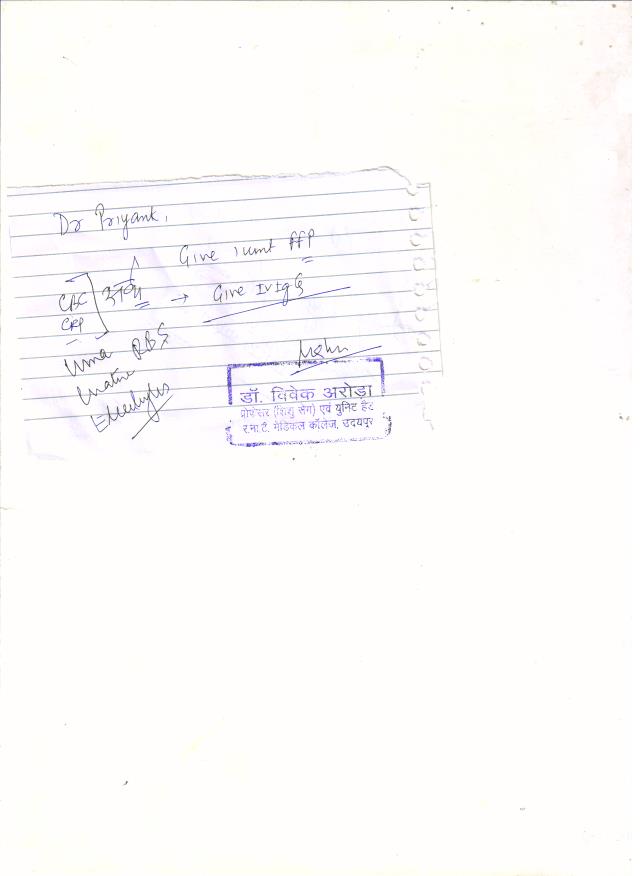 Dr Priyank,
Give 1 unit FFP
CBC
CRP
→ Give IVIg
Urea RBS
Electrolytes
डॉ. विवेक अरोड़ा
प्रोफेसर (शिशु रोग) एवं युनिट हैड
र.ना.टै. मेडिकल कॉलेज, उदयपुर